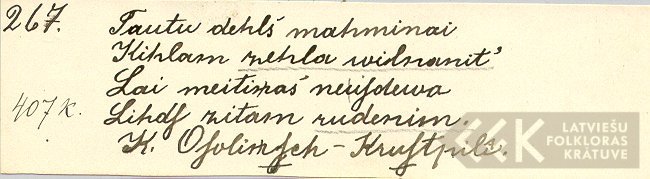 267. Tautu dehls mahminai
Kihlam zehla widnanit'
Lai meitinas neisdewa
407 k. Lihds zitam rudenim.
K. Osolinsch - Krustpils.
LATVIEŠU
FOLKLORAS
KRĀTUVE